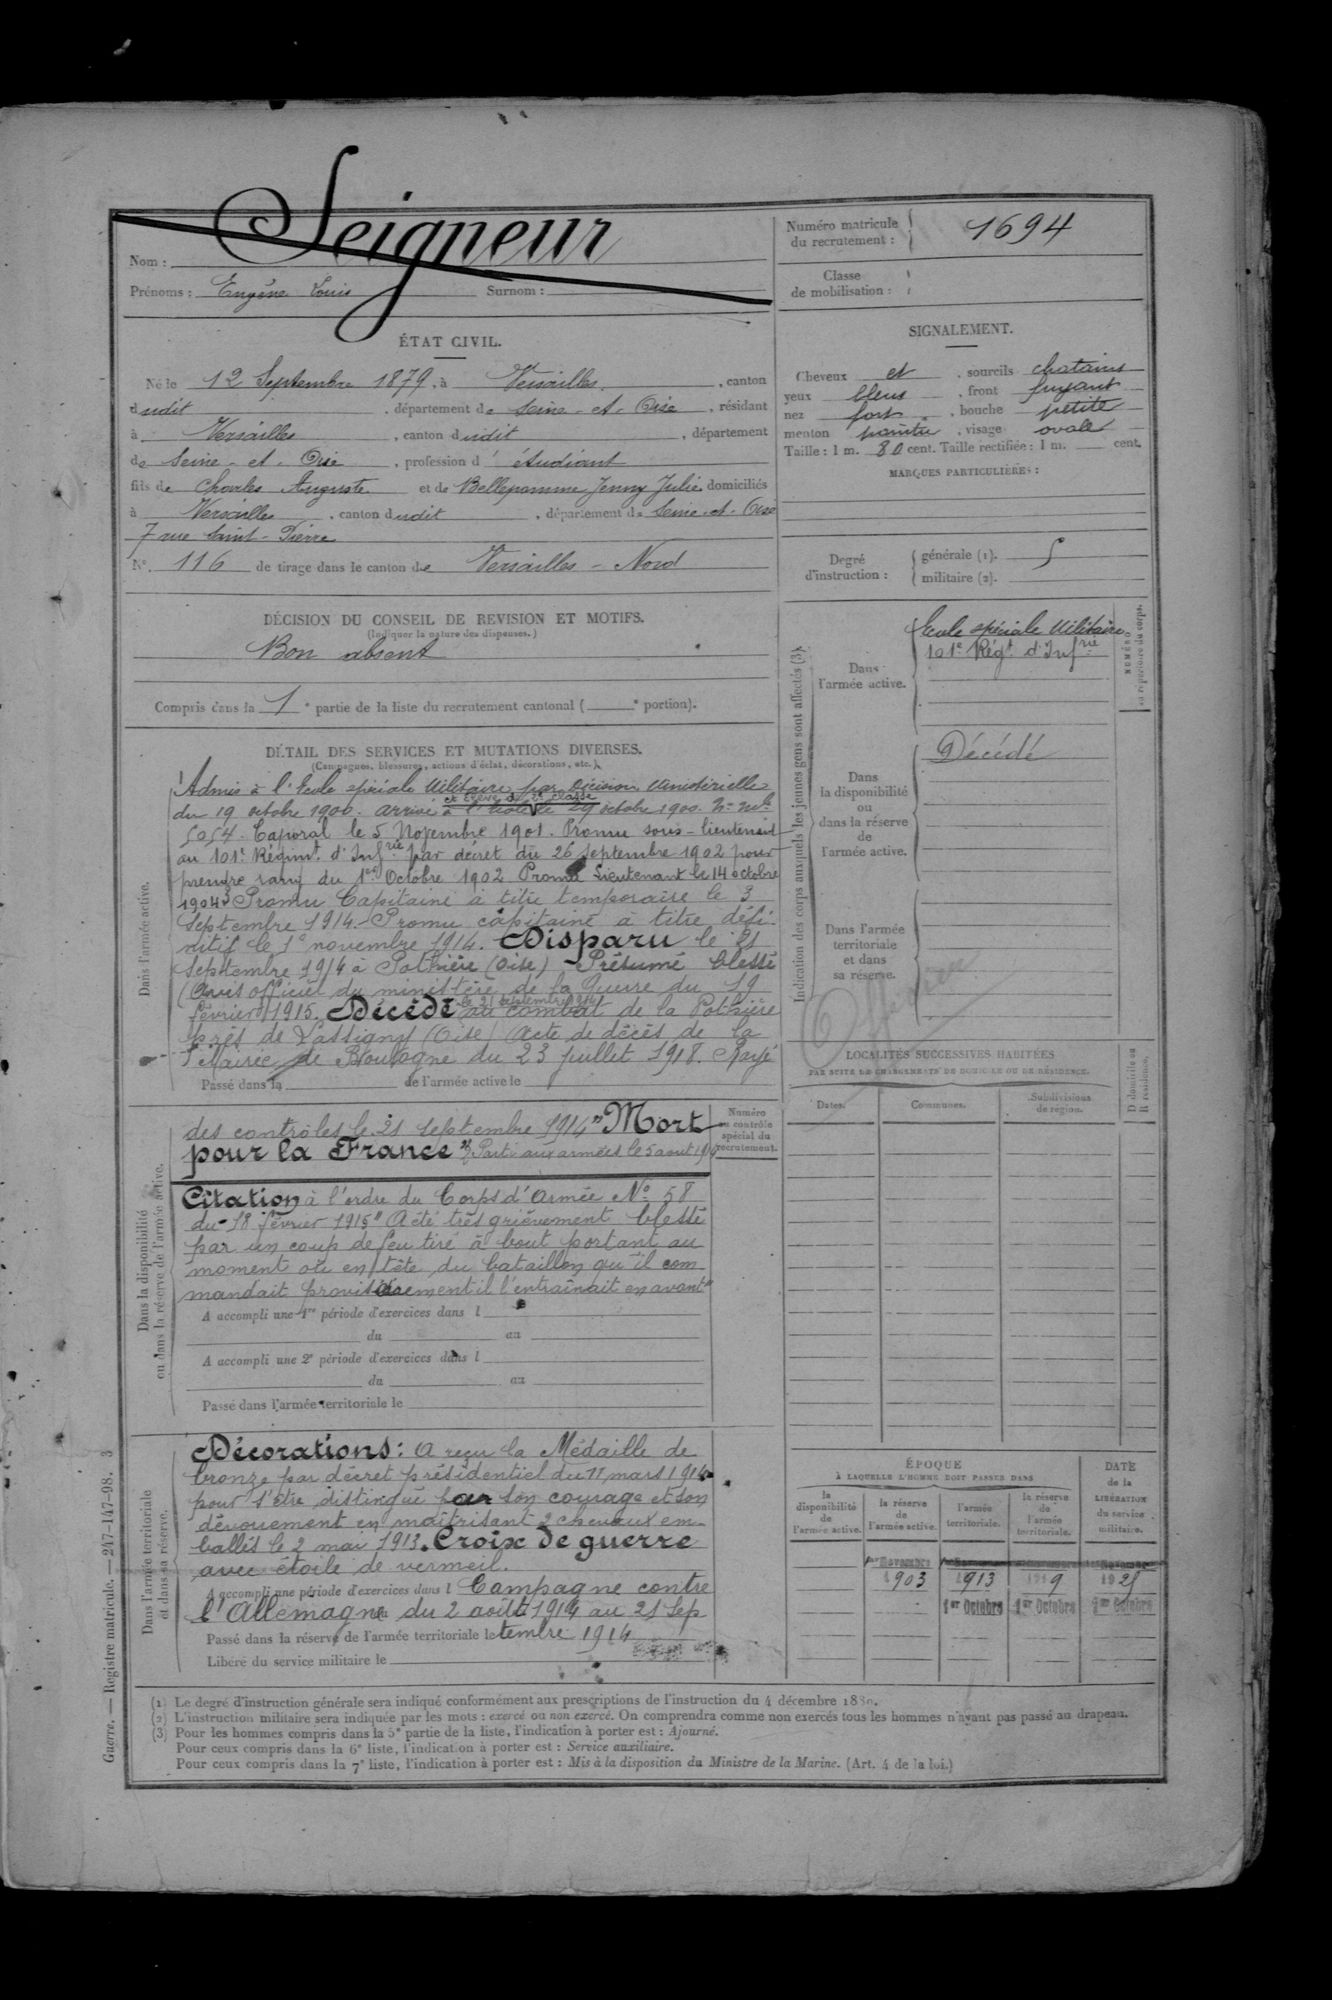 Seigneur
Nom :
Prénoms : Eugène Louis Surnom :
Numéro matricule du recrutement : 1694
Classe de mobilisation :
ÉTAT CIVIL.
Né le 12 Septembre 1879, à Versailles, canton
dudit, département de Seine-et-Oise, résidant
à Versailles, canton dudit, département
de Seine-et-Oise, profession d'étudiant
fils de Charles Auguste et de Bellepomme Jenny Julie domiciliés
à Versailles, canton dudit, département de Seine-et-Oise
7 rue Saint-Pierre
N° 116 de tirage dans le canton de Versailles-Nord
SIGNALEMENT.
Cheveux et, sourcils chatains
yeux bleus, front fuyant
nez fort, bouche petite
menton pointu, visage ovale
Taille : 1 m. 80 cent. Taille rectifiée : 1 m. cent.
MARQUES PARTICULIÈRES :
Degré d'instruction : générale (1). 5
militaire (2).
DÉCISION DU CONSEIL DE REVISION ET MOTIFS.
(Indiquer la nature des dispenses.)
Bon absent
Compris dans la 1e partie de la liste du recrutement cantonal ( e portion).
DÉTAIL DES SERVICES ET MUTATIONS DIVERSES.
(Campagnes, blessures, actions d'éclat, décorations, etc.)
Dans l'armée active.
Admis à l'Ecole spéciale Militaire par Décision Ministérielle
et élève de 2e classe
du 19 octobre 1900. arrivé à l'Ecole le 29 octobre 1900. N° mle
5054. Caporal le 5 Novembre 1901. Promu sous-lieutenant
au 101e Régimt d'Infrie par décret du 26 Septembre 1902 pour
prendre rang du 1er Octobre 1902 Promu Lieutenant le 14 octobre
1904 Promu Capitaine à titre temporaire le 3
Septembre 1914. Promu capitaine à titre défi-
nitif le 1er novembre 1914. Disparu le 21
Septembre 1914 à Pothière (Oise) Présumé blessé
(Avis officiel du ministère de la Guerre du 19
le 21 septembre 1914
février 1915. Décédé au combat de la Pothière
près de Lassigny (Oise) Acte de décès de la
Mairie de Boulogne du 23 juillet 1918. Rayé
Passé dans la de l'armée active le
Dans la disponibilité ou dans la réserve de l'armée active.
des contrôles le 21 septembre 1914 "Mort
pour la France" Parti aux armées le 5 aout 19
Citation à l'ordre du Corps d'Armée N° 58
du 18 février 1915 "A été très grièvement blessé
par un coup de feu tiré à bout portant au
moment où en tête du bataillon qu'il com
mandait provisoirement il l'entraînait en avant"
A accompli une 1re période d'exercices dans l
du au
A accompli une 2e période d'exercices dans l
du au
Passé dans l'armée territoriale le
Numéro au contrôle spécial du recrutement.
Dans l'armée territoriale et dans sa réserve.
Décorations : A reçu la Médaille de
bronze par décret présidentiel du 11 mars 1914
pour s'être distingué par son courage et son
dévouement en maîtrisant 2 chevaux em-
ballés le 2 mai 1913. Croix de guerre
avec étoile de vermeil.
A accompli une période d'exercices dans l Campagne contre
l'Allemagne du 2 août 1914 au 21 Sep
Passé dans la réserve de l'armée territoriale le tembre 1914
Libéré du service militaire le
Indication des corps auxquels les jeunes gens sont affectés (3).
Dans l'armée active.
Ecole spéciale Militaire
101e Régt d'Infrie
NUMÉRO au répertoire du corps.
Dans la disponibilité ou dans la réserve de l'armée active.
Décédé
Dans l'armée territoriale et dans sa réserve.
Officier
LOCALITÉS SUCCESSIVES HABITÉES
PAR SUITE DE CHANGEMENTS DE DOMICILE OU DE RÉSIDENCE.
Dates. Communes. Subdivisions de région. D domicile ou R résidence.
ÉPOQUE
À LAQUELLE L'HOMME DOIT PASSER DANS
DATE de la LIBÉRATION du service militaire.
la disponibilité de l'armée active.
la réserve de l'armée active.
l'armée territoriale.
la réserve de l'armée territoriale.
1er Novembre
1903 1913 1919 1925
1er Octobre 1er Octobre 1er Octobre
(1) Le degré d'instruction générale sera indiqué conformément aux prescriptions de l'instruction du 4 décembre 1889.
(2) L'instruction militaire sera indiquée par les mots : exercé ou non exercé. On comprendra comme non exercés tous les hommes n'ayant pas passé au drapeau.
(3) Pour les hommes compris dans la 5e partie de la liste, l'indication à porter est : Ajourné.
Pour ceux compris dans la 6e liste, l'indication à porter est : Service auxiliaire.
Pour ceux compris dans la 7e liste, l'indication à porter est : Mis à la disposition du Ministre de la Marine. (Art. 4 de la loi.)
Guerre. — Registre matricule. — 247-147-98. 3